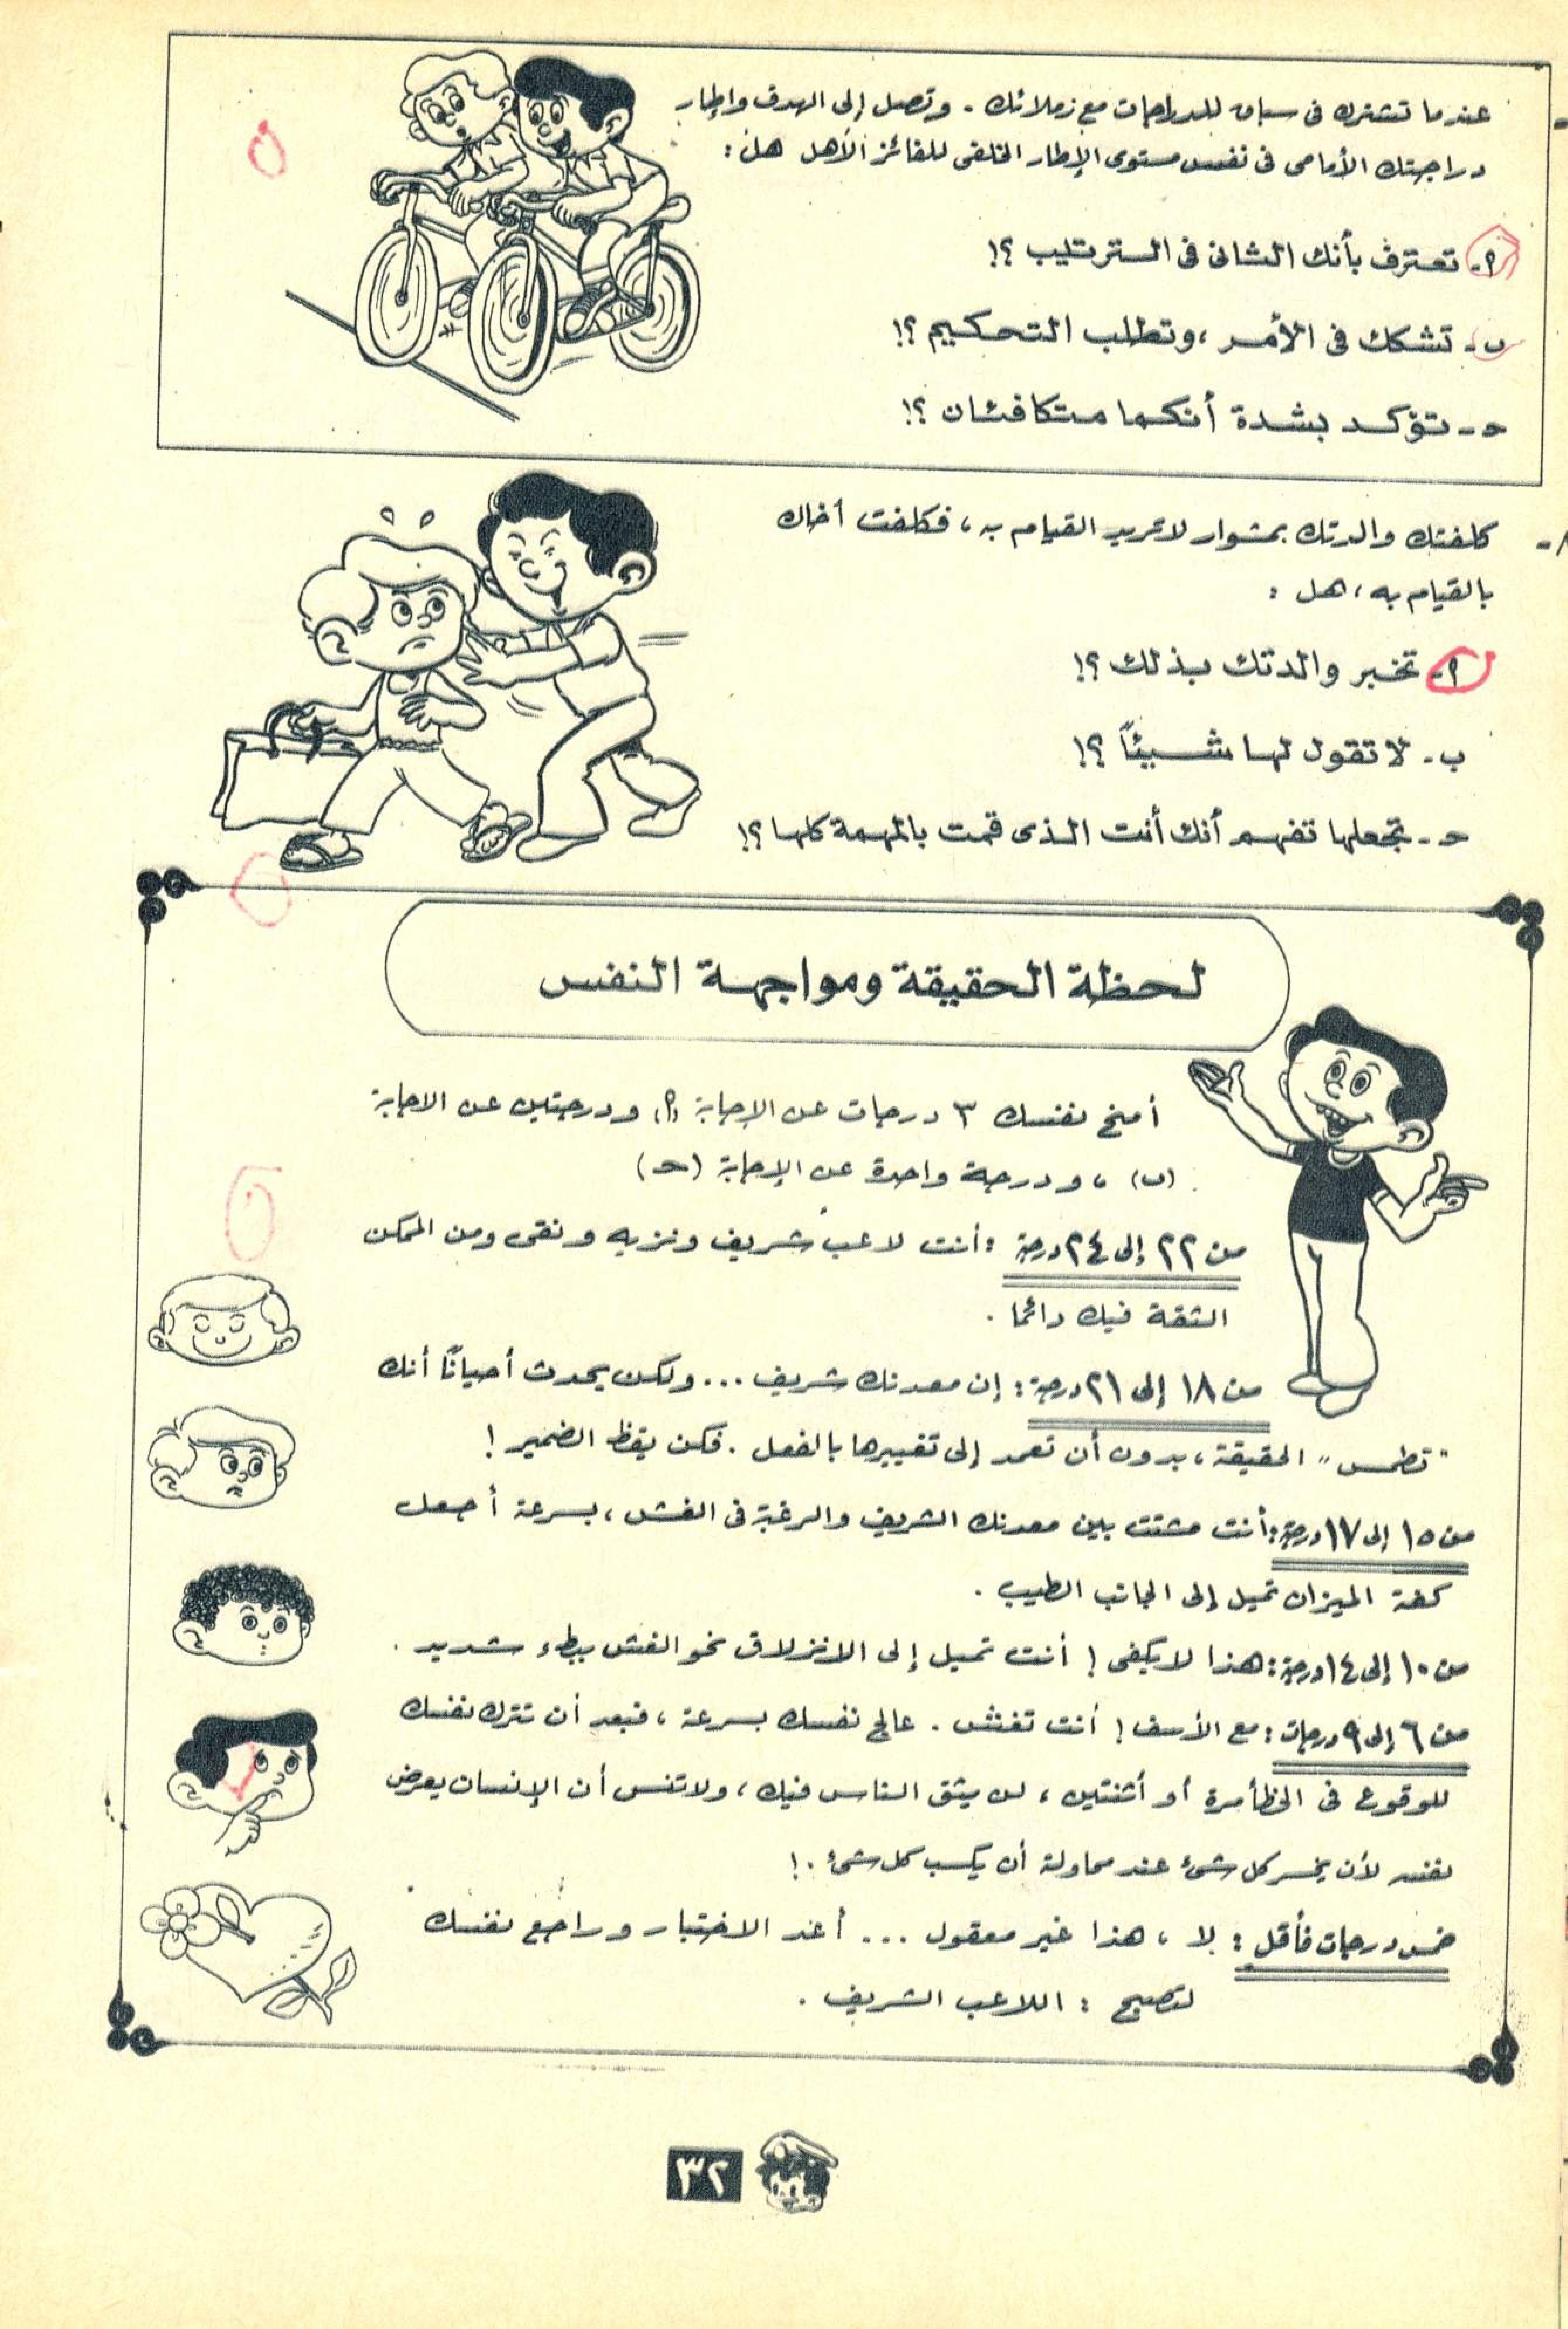 عندما تشترك فى سباق للدراجات مع زملائك - وتصل إلى الهدف وإطار
دراجتك الأمامى فى نفس مستوى الإطار الخلفى للفائز الأهل هل :
أ - تعترف بأنك الثانى فى الترتيب ؟!
ب - تشكك فى الأمر ، وتطلب التحكيم ؟!
حـ - تؤكد بشدة أنكما متكافئان ؟!
كلفتك والدتك بمشوار لا تريد القيام به ، فكلفت أخاك
بالقيام به ، هل :
أ - تخبر والدتك بذلك ؟!
ب - لا تقول لها شيئاً ؟!
حـ - تجعلها تفهم أنك أنت الذى قمت بالمهمة كلها ؟!
لحظة الحقيقة ومواجهة النفس
أمنح نفسك ٣ درجات عن الإجابة (أ) ودرجتين عن الاجابة
(ب) ، ودرجة واحدة عن الإجابة (حـ)
من ٢٢ إلى ٢٤ درجة : أنت لاعب شريف ونزيه ونقى ومن الممكن
الثقة فيك دائما .
من ١٨ إلى ٢١ درجة : إن معدنك شريف ... ولكن يحدث أحياناً أنك
"تطمس" الحقيقة ، بدون أن تعمد إلى تغييرها بالفعل . فكن يقظ الضمير !
من ١٥ إلى ١٧ درجة : أنت مشتت بين معدنك الشريف والرغبة فى الغش ، بسرعة أجعل
كفة الميزان تميل إلى الجانب الطيب .
من ١٠ إلى ١٤ درجة : هذا لا يكفى ! أنت تميل إلى الانزلاق نحو الغش ببطء شديد .
من ٦ إلى ٩ درجات : مع الأسف ! أنت تغش . عالج نفسك بسرعة ، فبعد أن تترك نفسك
للوقوع فى الخطأ مرة أو أثنتين ، لن يثق الناس فيك ، ولا تنس أن الإنسان يعرض
نفسه لأن يخسر كل شىء عند محاولة أن يكسب كل شىء . !
خمس درجات فأقل : لا ، هذا غير معقول ... أعد الاختبار وراجع نفسك
لتصبح : اللاعب الشريف .
٣٢